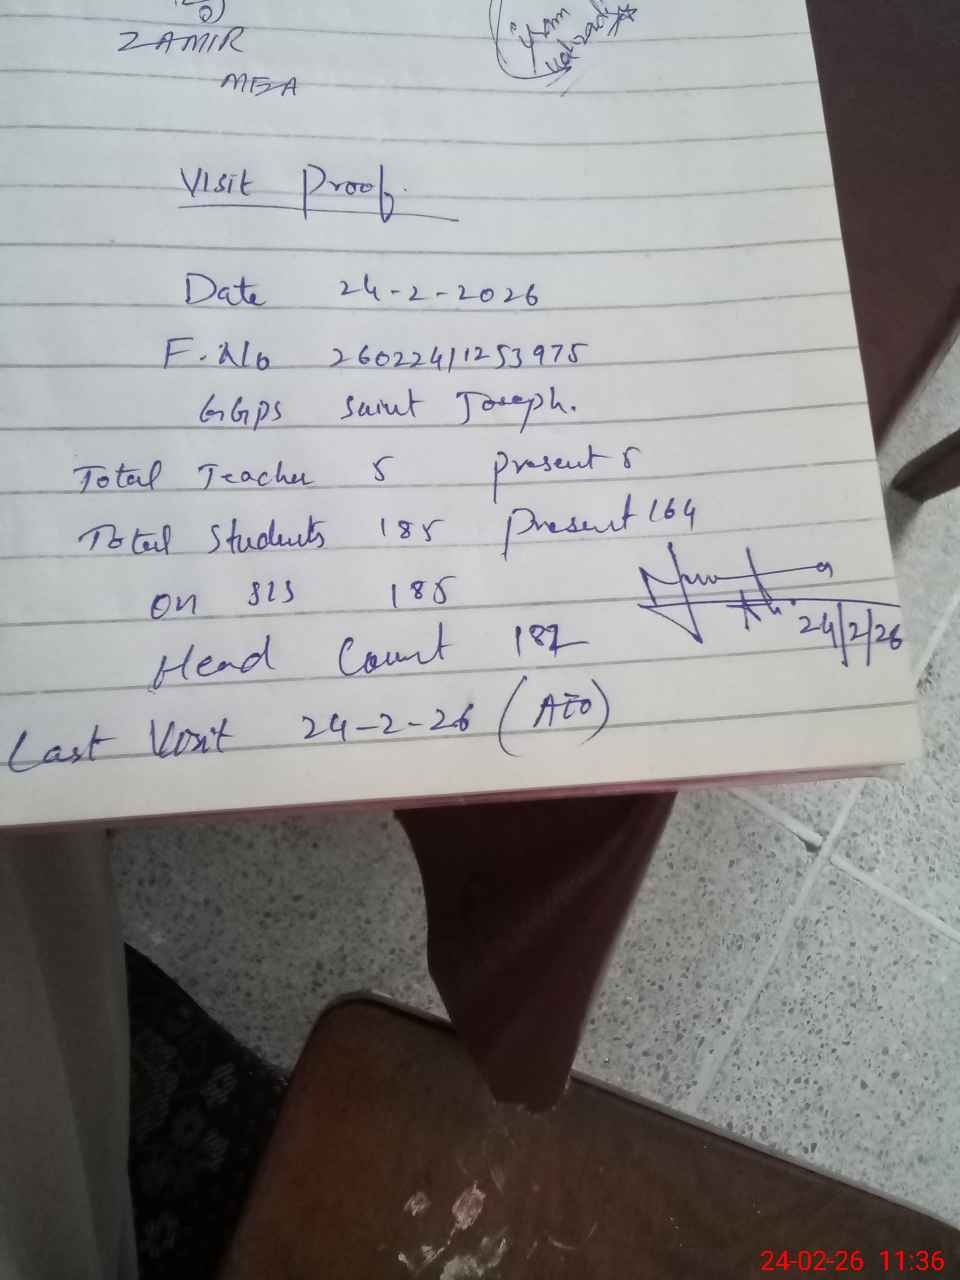 ZAMIR
MEA
Visit Proof.
Date 24-2-2026
F.No 26022411253975
GGPS Saint Joseph.
Total Teacher 5 present 5
Total Students 185 Present 164
on SIS 185
Head Count
24/2/26
Last Visit 24-2-26 (AEO)
24-02-26 11:36